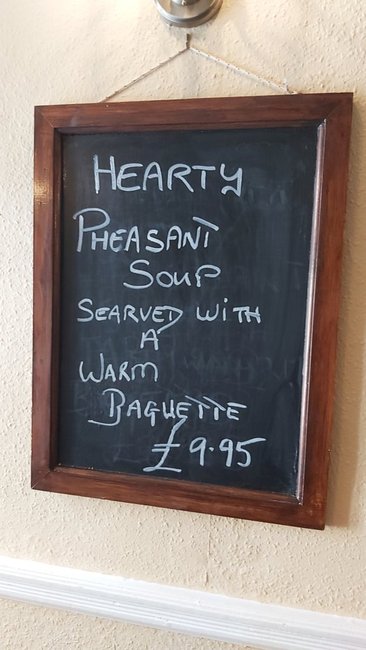 HEARTY
PHEASANT
SOUP
SEARVED WITH
A
WARM
BAGUETTE
£9.95